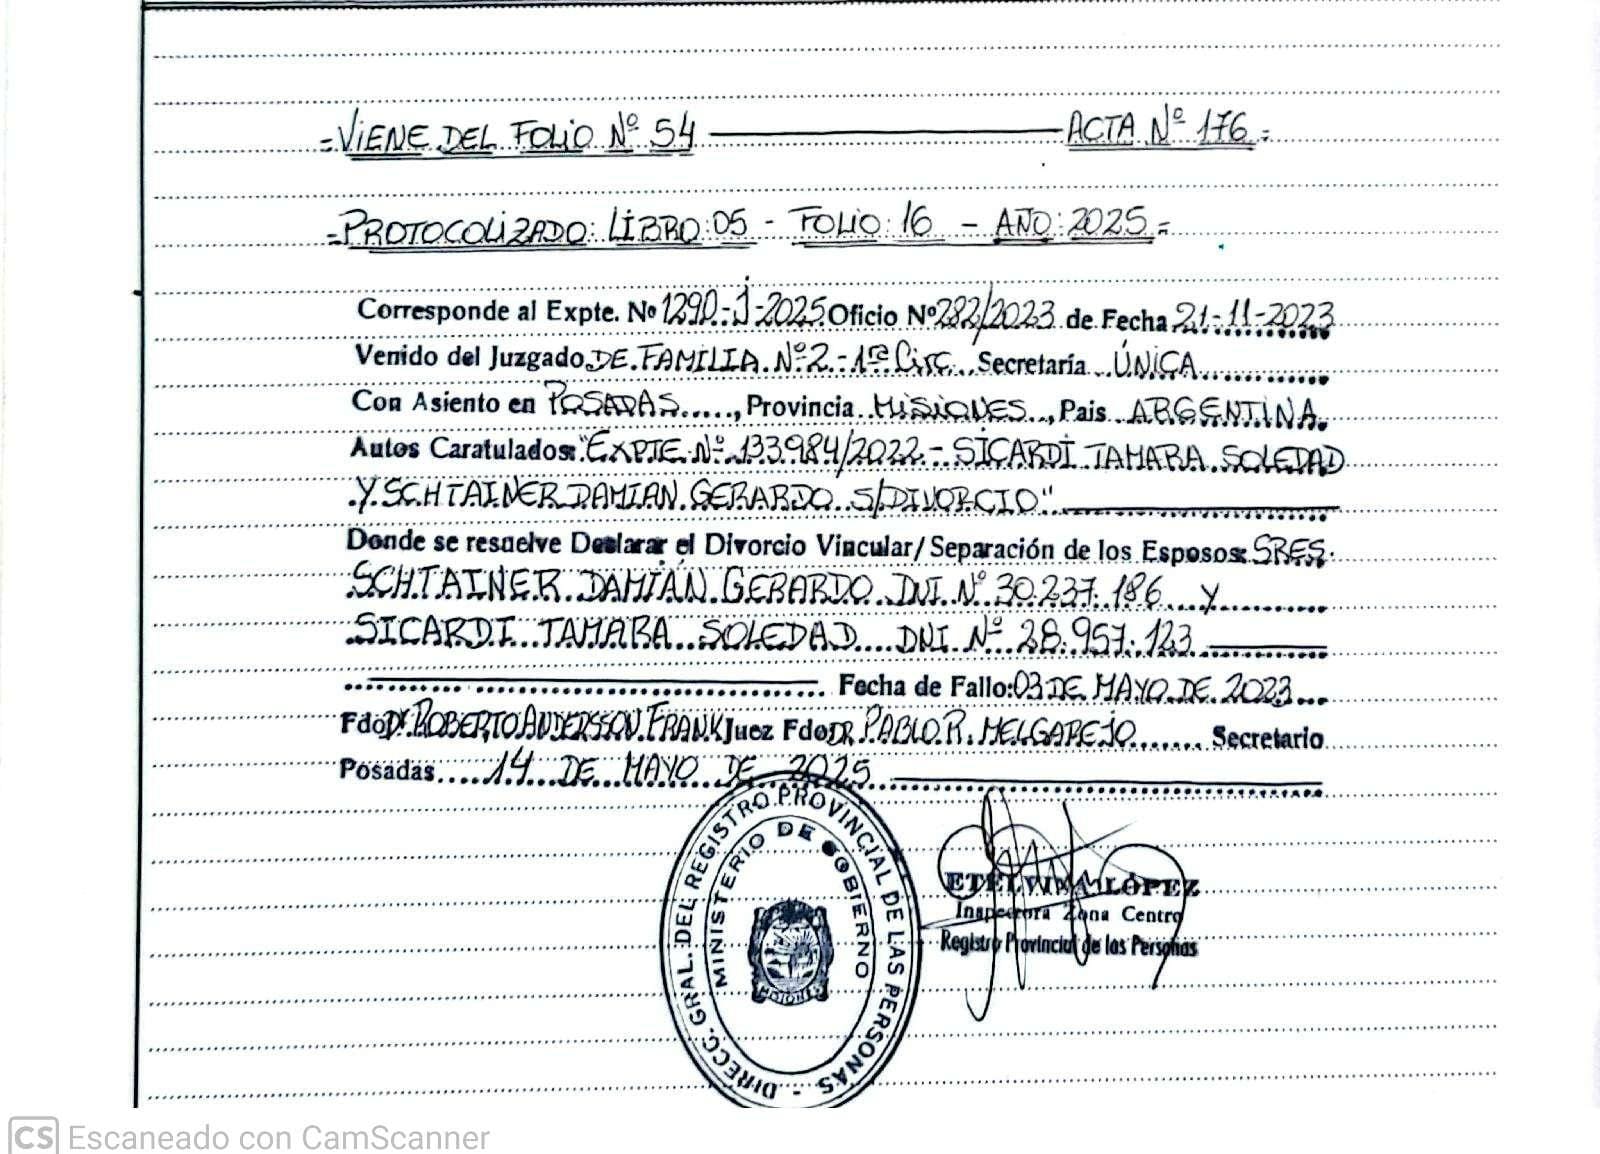 =VIENE DEL FOLIO Nº 54 ACTA Nº 176=
=PROTOCOLIZADO: LIBRO: 05 - FOLIO: 16 - AÑO: 2025=
Corresponde al Expte. Nº 1290-J-2025 Oficio Nº 282/2023 de Fecha 21-11-2023
Venido del Juzgado DE FAMILIA Nº 2 - 1ra Circ. Secretaría ÚNICA
Con Asiento en POSADAS....., Provincia MISIONES.., Pais ARGENTINA.
Autos Caratulados: "EXPTE. Nº 133984/2022 - SICARDI TAMARA SOLEDAD
Y SCHTAINER DAMIAN GERARDO S/DIVORCIO"
Donde se resuelve Declarar el Divorcio Vincular/Separación de los Esposos: SRES.
SCHTAINER DAMIÁN GERARDO DNI Nº 30.237.186 Y
SICARDI TAMARA SOLEDAD DNI Nº 28.957.123
Fecha de Fallo: 03 DE MAYO DE 2023
Fdo Dr. ROBERTO ANDERSSON FRANK Juez Fdo DR PABLO R. MELGAREJO Secretario
Posadas 14 DE MAYO DE 2025
DIRECC. GRAL. DEL REGISTRO PROVINCIAL DE LAS PERSONAS -
MINISTERIO DE GOBIERNO
MISIONES
ETELVINA LÓPEZ
Inspectora Zona Centro
Registro Provincial de las Personas
CS Escaneado con CamScanner